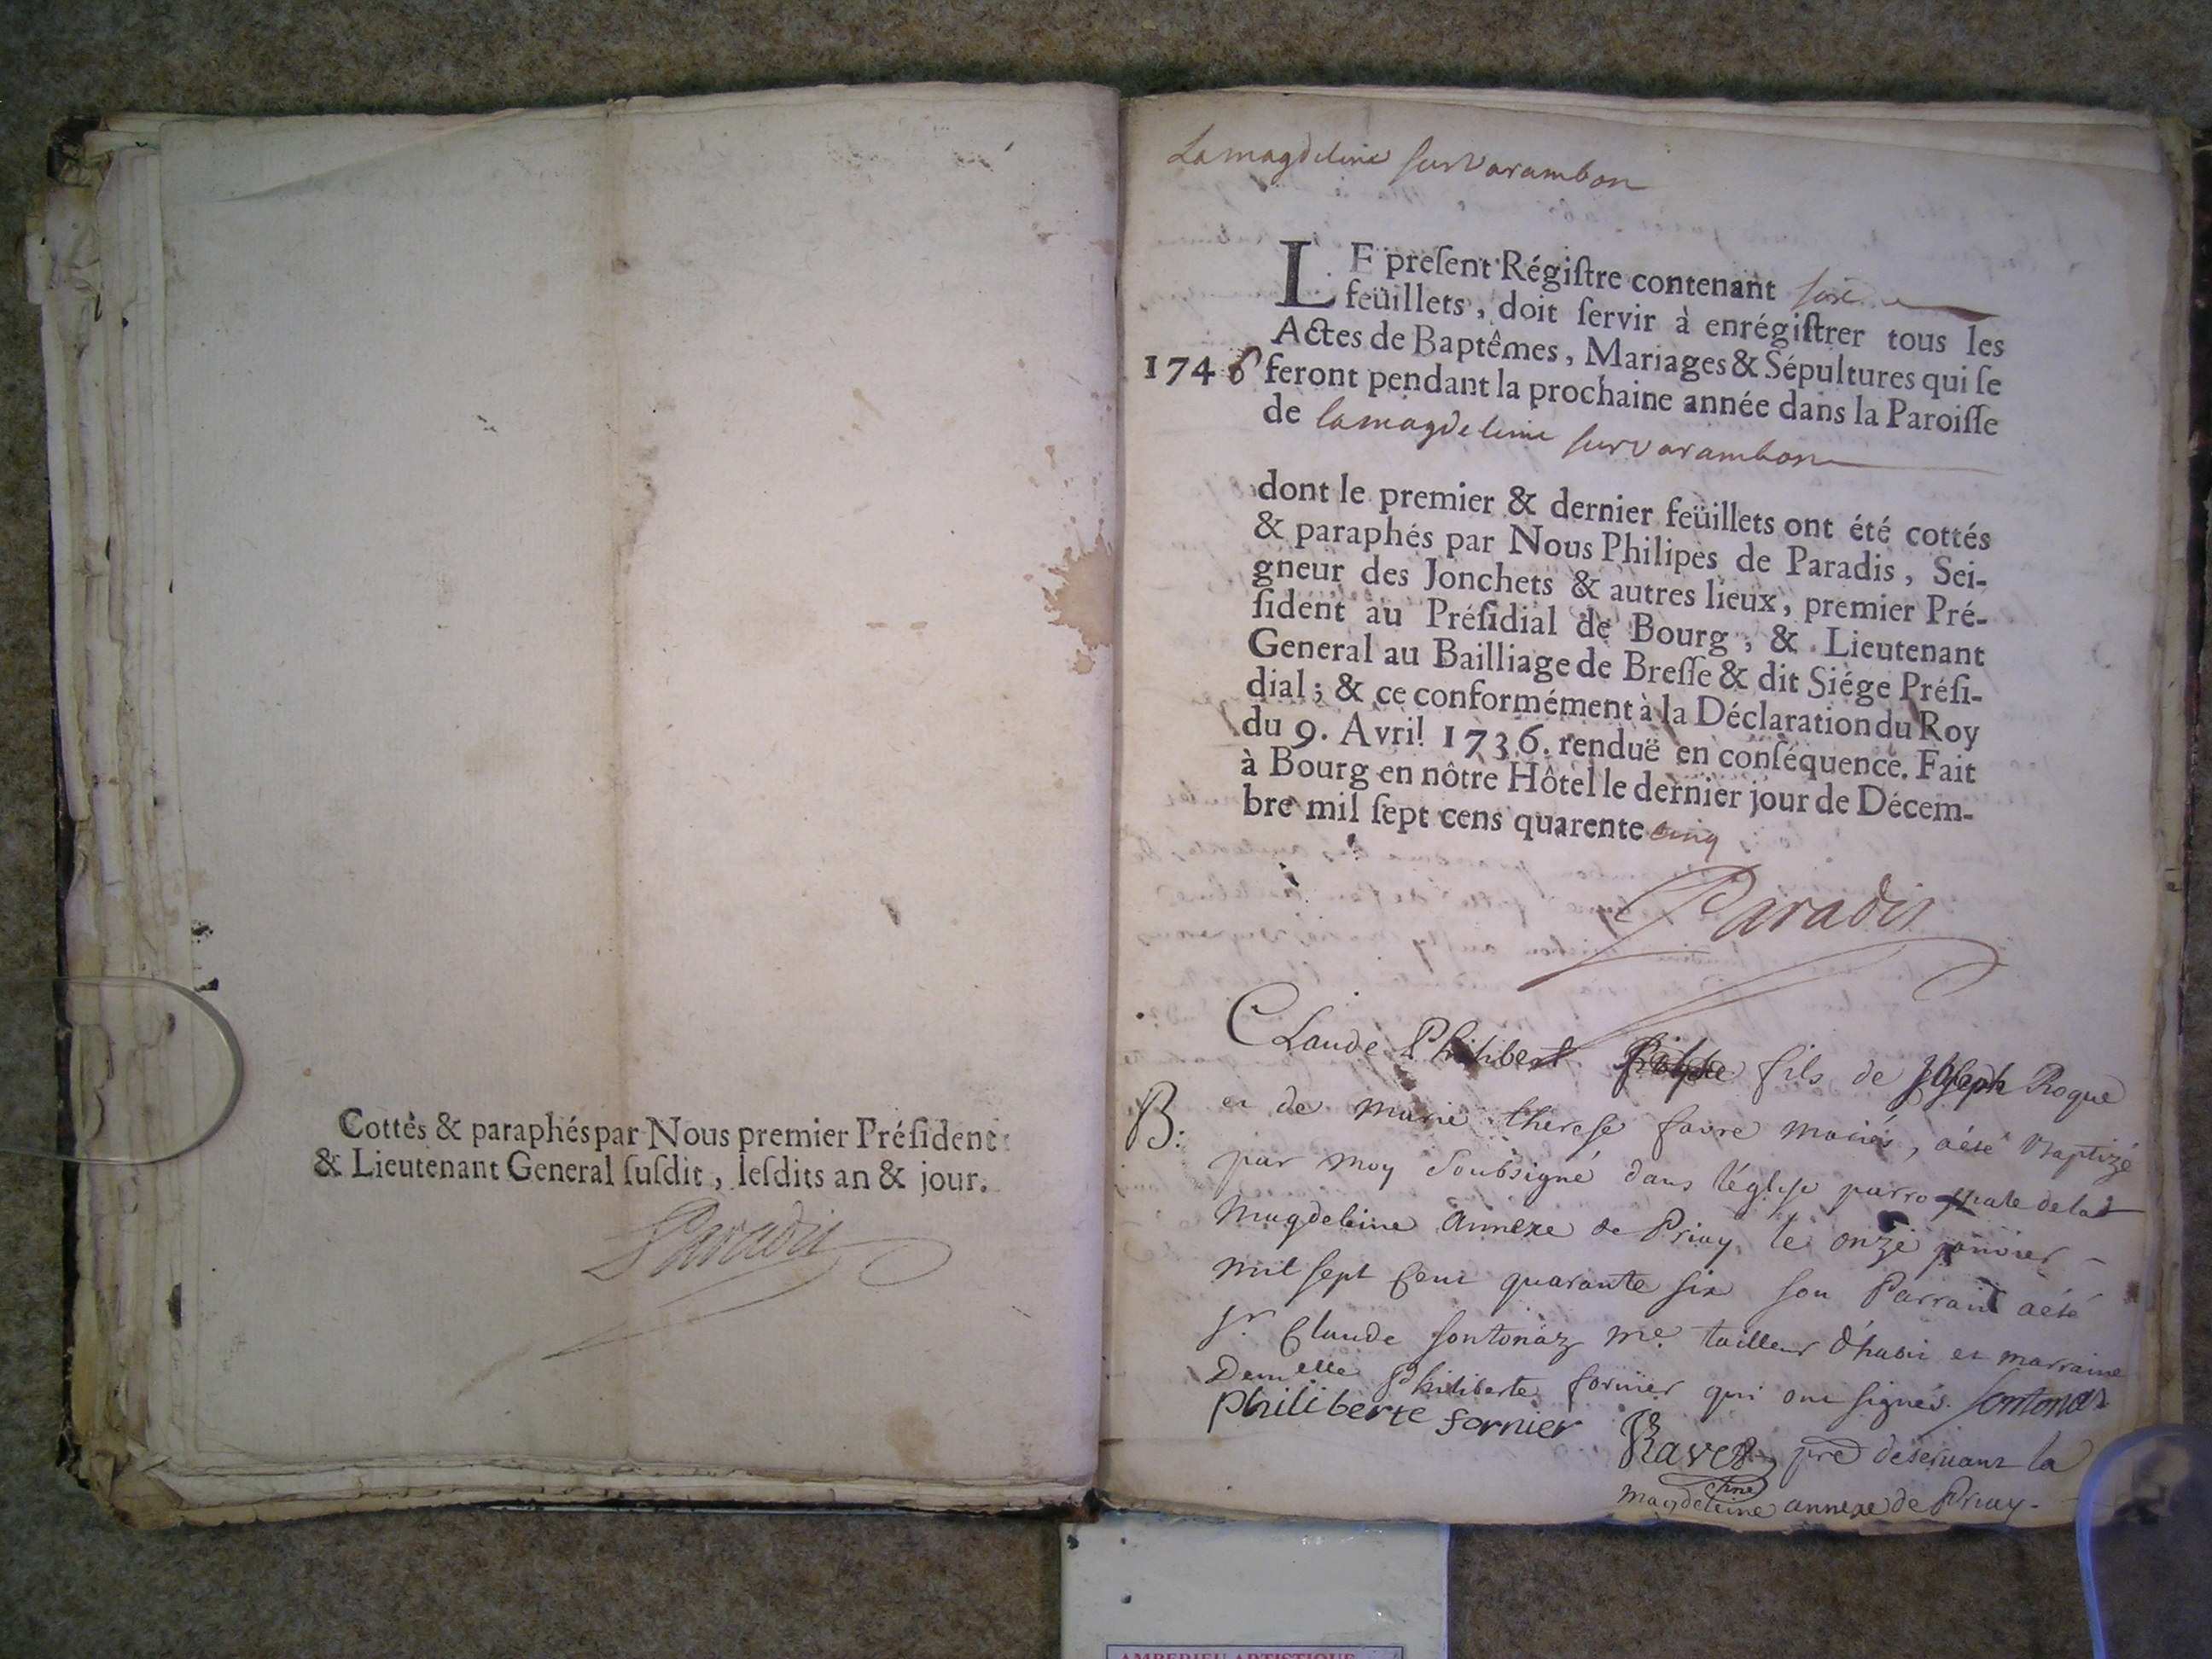 Cottés & paraphés par Nous premier Préſident
& Lieutenant General ſuſdit, leſdits an & jour.
Paradis
Lamagdeleine ſur Varambon
LE preſent Régiſtre contenant ſix
feüillets, doit ſervir à enrégiſtrer tous les
Actes de Baptêmes, Mariages & Sépultures qui ſe
1746 feront pendant la prochaine année dans la Paroiſſe
de lamagdeleine ſur varambon
dont le premier & dernier feüillets ont été cottés
& paraphés par Nous Philipes de Paradis, Sei-
gneur des Jonchets & autres lieux, premier Pré-
ſident au Préſidial de Bourg, & Lieutenant
General au Bailliage de Breſſe & dit Siége Préſi-
dial; & ce conformément à la Déclaration du Roy
du 9. Avril 1736. renduë en conſéquence. Fait
à Bourg en nôtre Hôtel le dernier jour de Décem-
bre mil ſept cens quarente cinq
Paradis
Claude Philibert fils de Joſeph Rogue
B: et de marie thereſe favre mariés, aété Baptizé
par moy Soubsigné dans l'égliſe parroquale de la
Magdeleine annexe de Priay le onze janvier
mil ſept cent quarante ſix ſon Parrain aété
Sr Claude fontonaz me. tailleur d'habit et marraine
Demelle Philiberte fornier qui ont signés. fontonas
philiberte fornier
Ravet pre deservant la
Magdeleine annexe de Priay-
AMBERIEU ARTISTIQUE